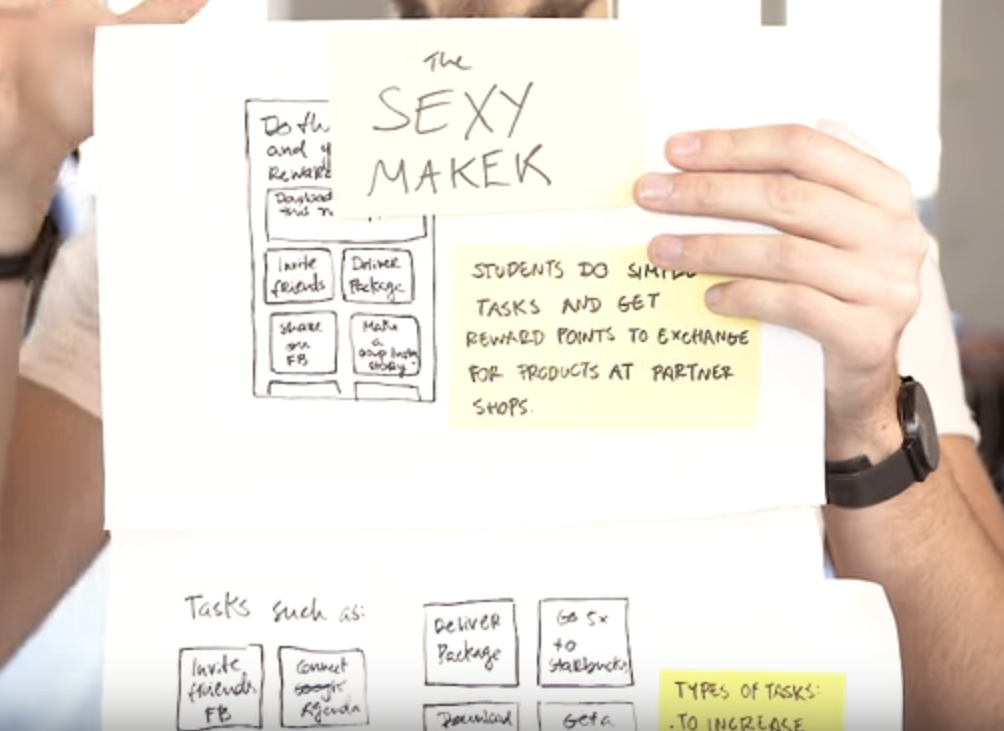 The
SEXY
MAKEK
Do th
and y
Reward
Download
this n
Invite
friends
Deliver
Package
Share
on
FB
Make
a
story"
STUDENTS DO SIMPLE
TASKS AND GET
REWARD POINTS TO EXCHANGE
FOR PRODUCTS AT PARTNER
SHOPS.
Tasks such as:
Invite
friends
FB
Connect
Google
Agenda
DELIVER
Package
Go 5x
to
Starbucks
Download
Get a
TYPES OF TASKS:
. TO INCREASE